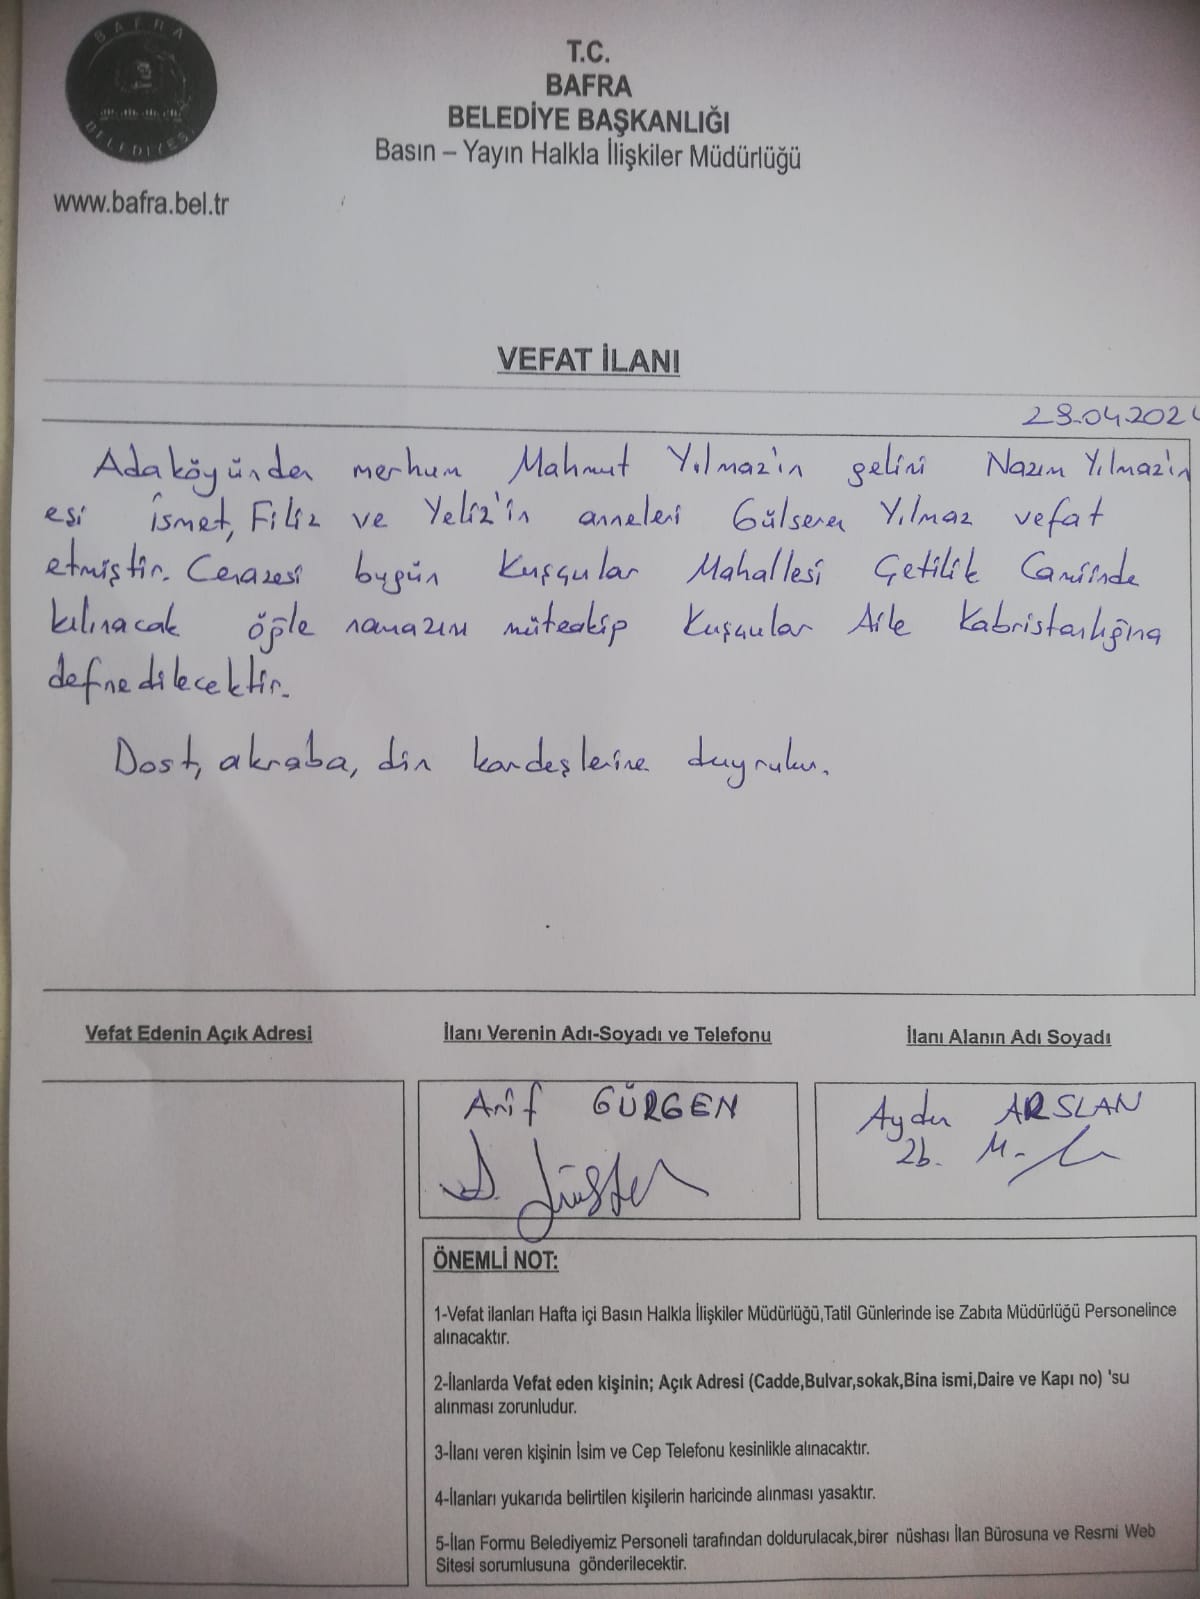 BAFRA
BELEDİYESİ
www.bafra.bel.tr
T.C.
BAFRA
BELEDİYE BAŞKANLIĞI
Basın – Yayın Halkla İlişkiler Müdürlüğü
VEFAT İLANI
Adaköyünden merhum Mahmut Yılmaz'ın gelini Nazım Yılmaz'ın
eşi İsmet, Filiz ve Yeliz'in anneleri Gülseren Yılmaz vefat
etmiştir. Cenazesi bugün Kuşçular Mahallesi Çetilik Camiinde
kılınacak öğle namazını müteakip Kuşçular Aile Kabristanlığına
defnedilecektir.
Dost, akraba, din kardeşlerine duyrulur.
Vefat Edenin Açık Adresi
İlanı Verenin Adı-Soyadı ve Telefonu
İlanı Alanın Adı Soyadı
Arif GÜRGEN
Aydın ARSLAN
Zb. M.
ÖNEMLİ NOT:
1-Vefat ilanları Hafta içi Basın Halkla İlişkiler Müdürlüğü,Tatil Günlerinde ise Zabıta Müdürlüğü Personelince
alınacaktır.
2-İlanlarda Vefat eden kişinin; Açık Adresi (Cadde,Bulvar,sokak,Bina ismi,Daire ve Kapı no) 'su
alınması zorunludur.
3-İlanı veren kişinin İsim ve Cep Telefonu kesinlikle alınacaktır.
4-İlanları yukarıda belirtilen kişilerin haricinde alınması yasaktır.
5-İlan Formu Belediyemiz Personeli tarafından doldurulacak,birer nüshası İlan Bürosuna ve Resmi Web
Sitesi sorumlusuna gönderilecektir.